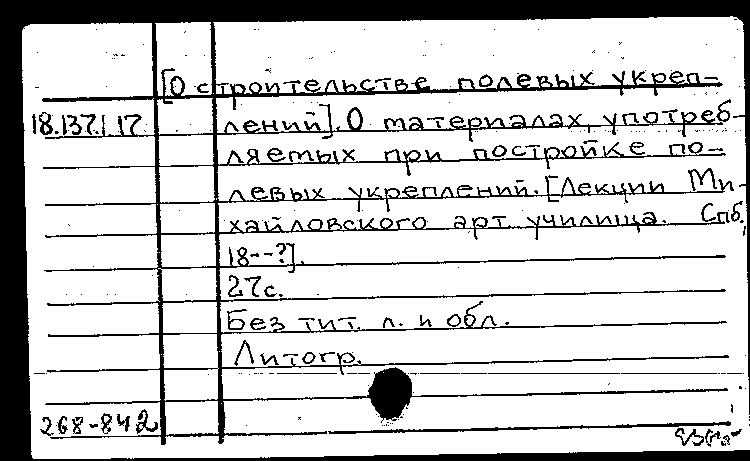 [О строительстве полевых укреп-
18.137.1.17 лений]. О материалах, употреб-
ляемых при постройке по-
левых укреплений. [Лекции Ми-
хайловского арт. училища. Спб.,
18--?].
27с.
Без тит. л. и обл.
Литогр.
268-842